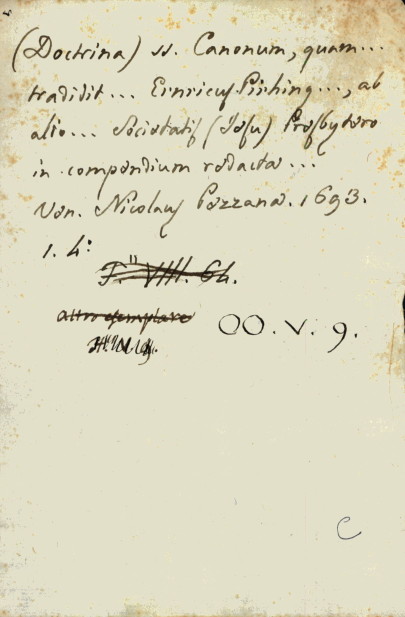 (Doctrina) ss. Canonum, quam...
tradidit... Einricus Pirhing..., ab
alio... Societatis (Jesu) Presbytero
in compendium redacta...
Ven. Nicolaus Pezzana. 1693.
1. 4:
F. VIII. 64.
altro esemplare
OO. V. 9.
C